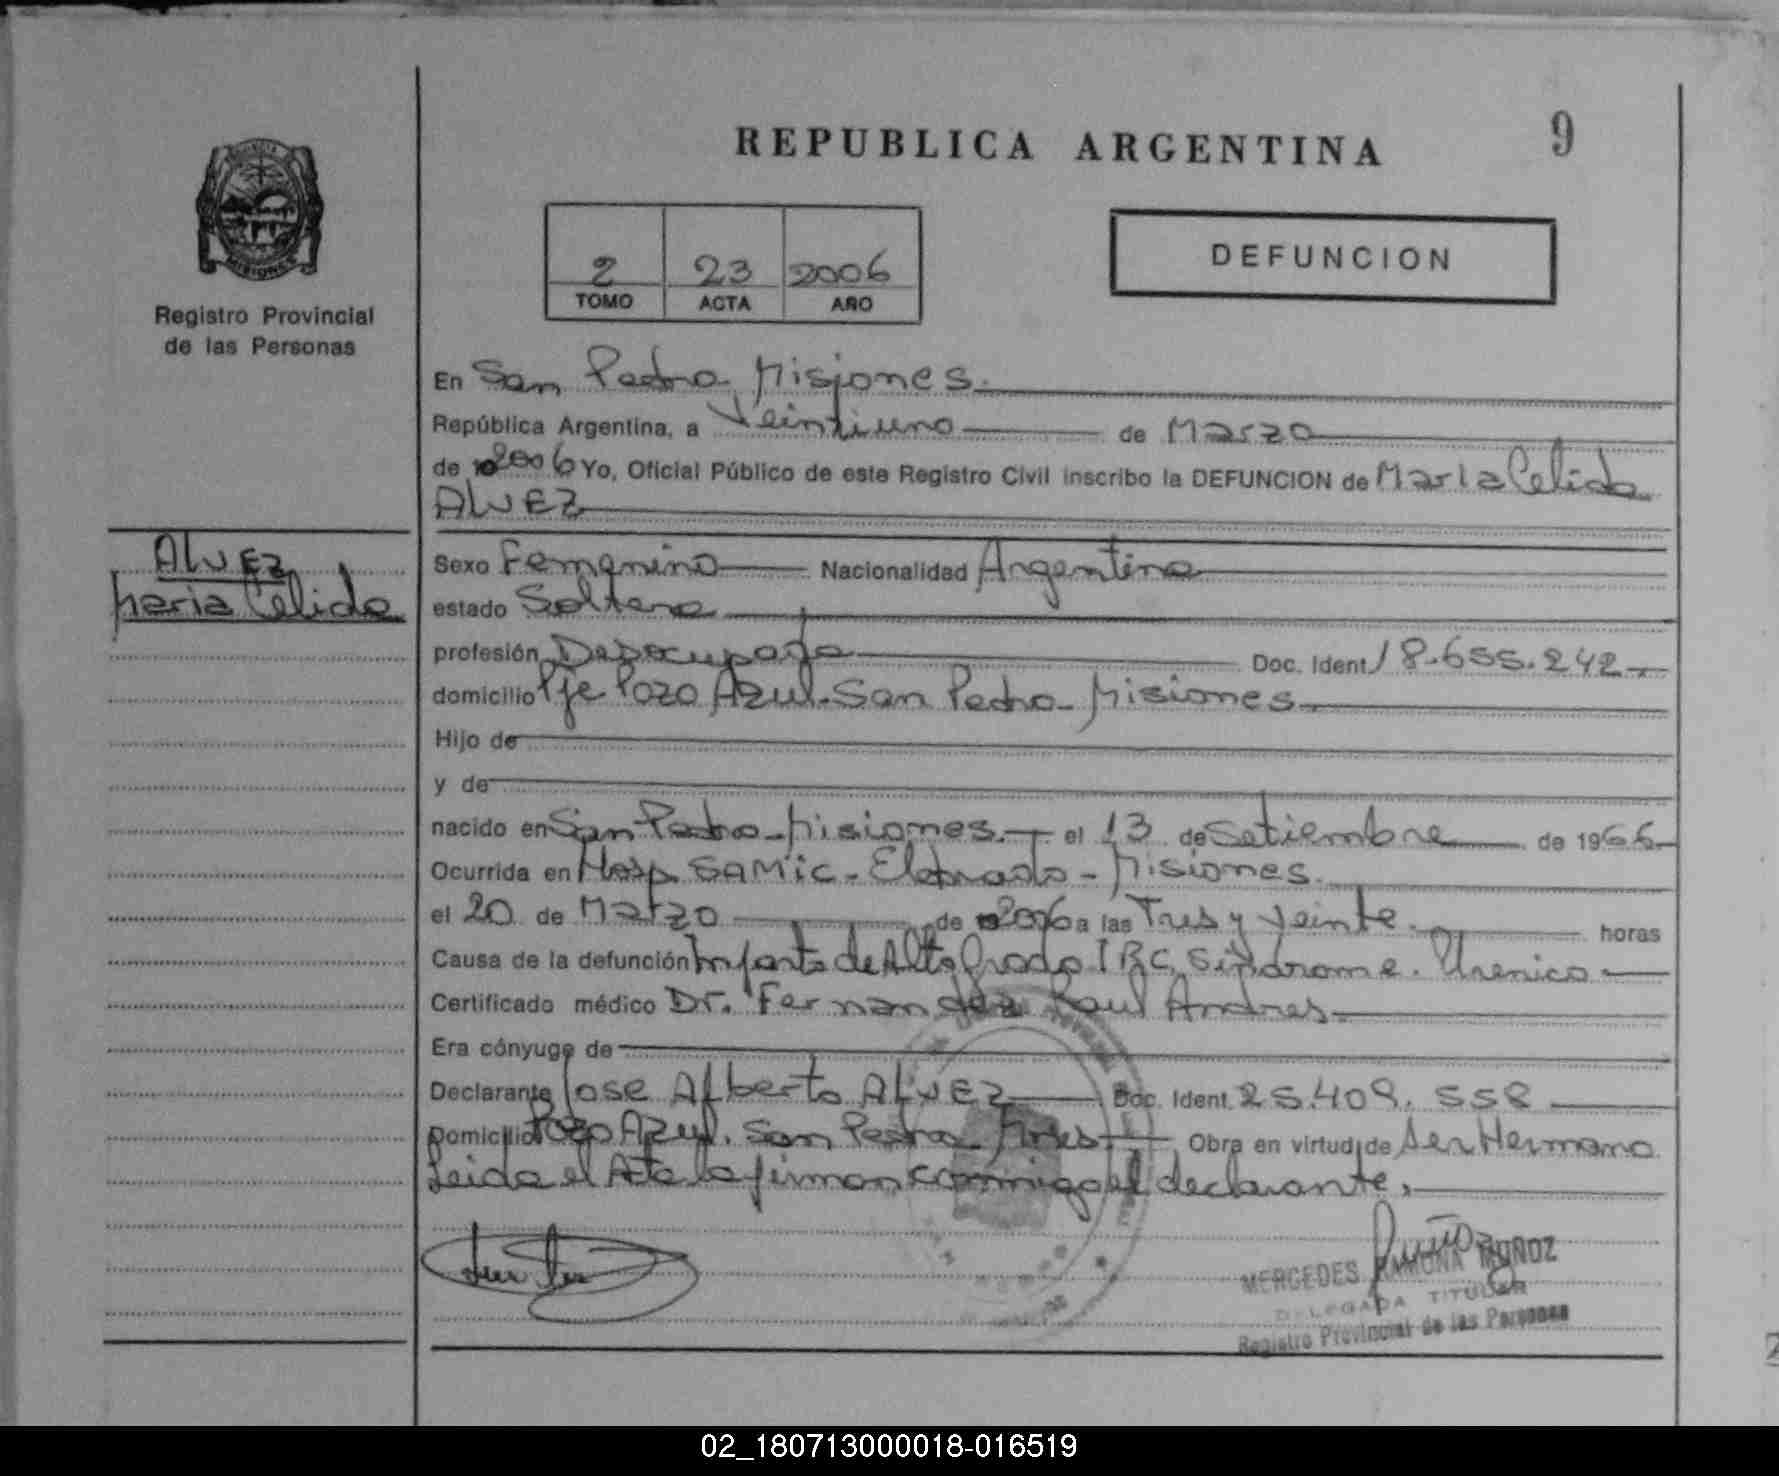 REPUBLICA ARGENTINA
9
MISIONES
Registro Provincial
de las Personas
2 23 2006
TOMO ACTA AÑO
DEFUNCION
En San Pedro Misiones.
República Argentina, a Veintiuno de Marzo
de 2006 Yo, Oficial Público de este Registro Civil inscribo la DEFUNCION de Maria Celida
ALVEZ
ALVEZ
Maria Celida
Sexo Femenino Nacionalidad Argentina
estado Soltera
profesión Desocupada Doc. Ident. 18.655.242
domicilio Pje Pozo Azul. San Pedro - Misiones
Hijo de
y de
nacido en San Pedro - Misiones. el 13 de Setiembre de 1966
Ocurrida en Hosp SAMIC - Eldorado - Misiones.
el 20 de Marzo de 2006 a las Tres y Veinte horas
Causa de la defunción Infarto de Alto Grado IRC, Sindrome. Urenico
Certificado médico Dr. Fernandez Raul Andres
Era cónyuge de
Declarante Jose Alberto ALVEZ Doc. Ident. 25.409.558
Domicilio Pozo Azul. San Pedro Mnes Obra en virtud de Ser Hermano
Leida el Acta la firman conmigo el declarante,
MERCEDES RAMONA MUÑOZ
DELEGADA TITULAR
Registro Provincial de las Personas
02_180713000018-016519